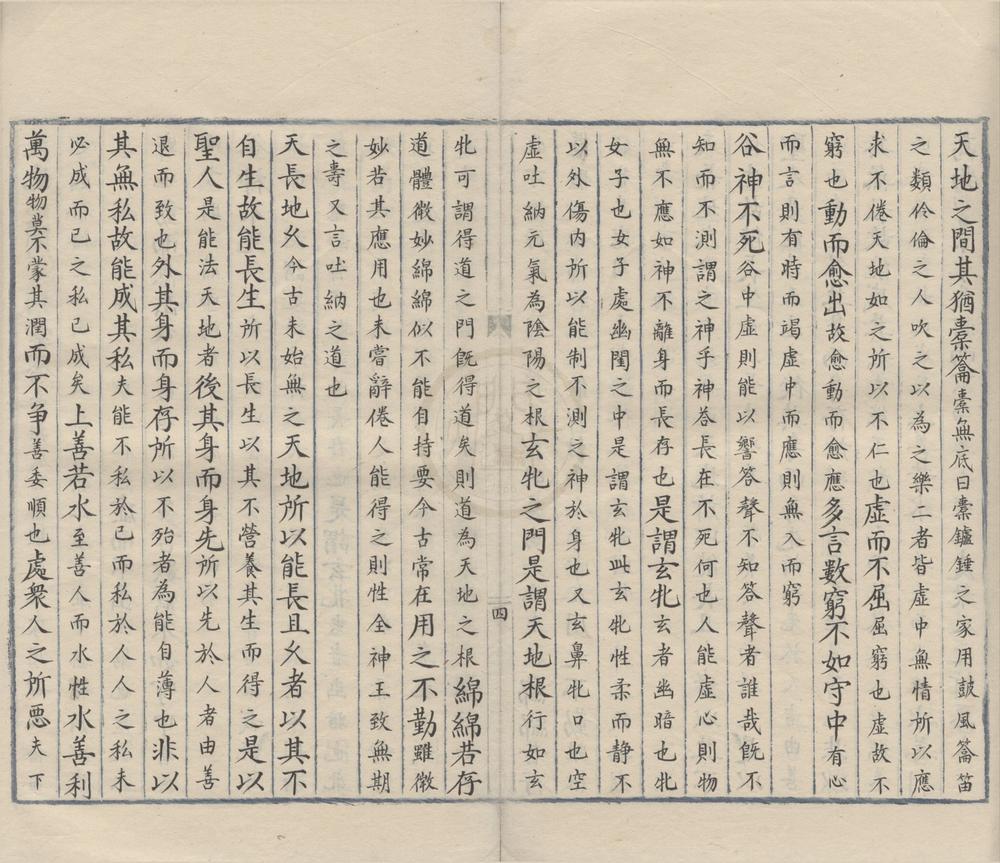 天地之間其猶橐籥橐無底曰橐鑪錘之家用皷風籥笛
之類伶倫之人吹之以為之樂二者皆虛中無情所以應
求不倦天地如之所以不仁也虛而不屈屈窮也虛故不
窮也動而愈出故愈動而愈應多言數窮不如守中有心
而言則有時而竭虛中而應則無入而窮
谷神不死谷中虛則能以響答聲不知答聲者誰哉旣不
知而不測謂之神乎神荅長在不死何也人能虛心則物
無不應如神不離身而長存也是謂玄牝玄者幽暗也牝
女子也女子處幽閨之中是謂玄牝此玄牝性柔而静不
以外傷内所以能制不測之神於身也又玄鼻牝口也空
虛吐納元氣為陰陽之根玄牝之門是謂天地根行如玄
四
牝可謂得道之門旣得道矣則道為天地之根綿綿若存
道體微妙綿綿似不能自持要今古常在用之不勤雖微
妙若其應用也未嘗辭倦人能得之則性全神王致無期
之壽又言吐納之道也
天長地久今古未始無之天地所以能長且久者以其不
自生故能長生所以長生以其不營養其生而得之是以
聖人是能法天地者後其身而身先所以先於人者由善
退而致也外其身而身存所以不殆者為能自薄也非以
其無私故能成其私夫能不私於已而私於人人之私未
必成而已之私已成矣上善若水至善人而水性水善利
萬物物莫不蒙其潤而不争善委順也處衆人之所惡夫下